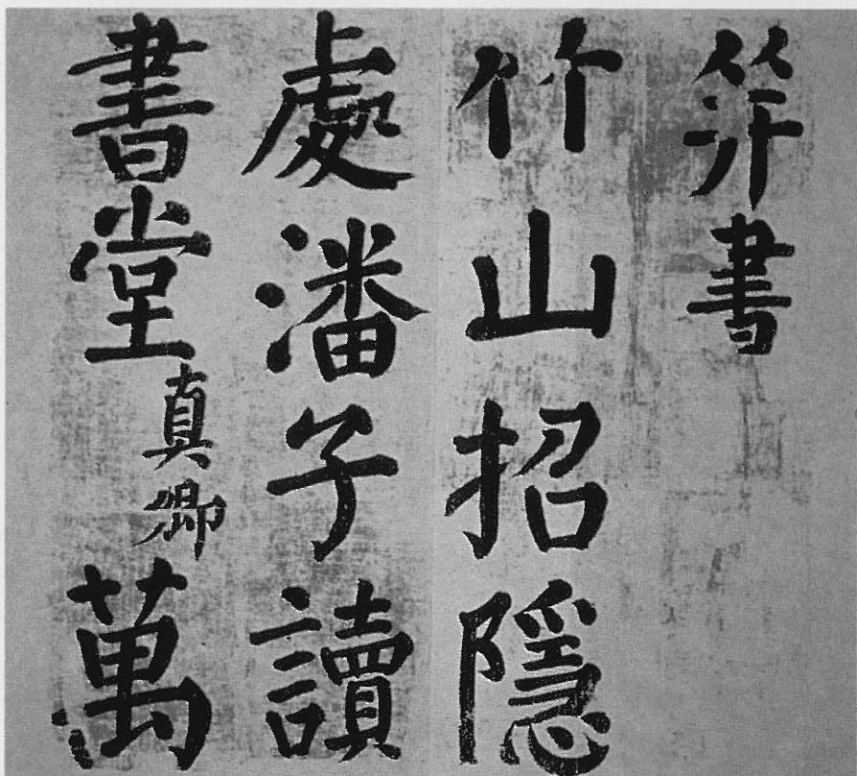 笄書
竹山招隱
處潘子讀
書堂真卿萬